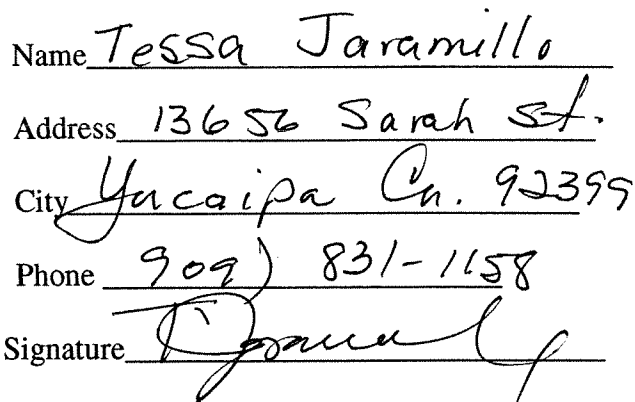 Name Tessa Jaramillo
Address 13656 Sarah St.
City Yucaipa Ca. 92399
Phone 909) 831-1158
Signature